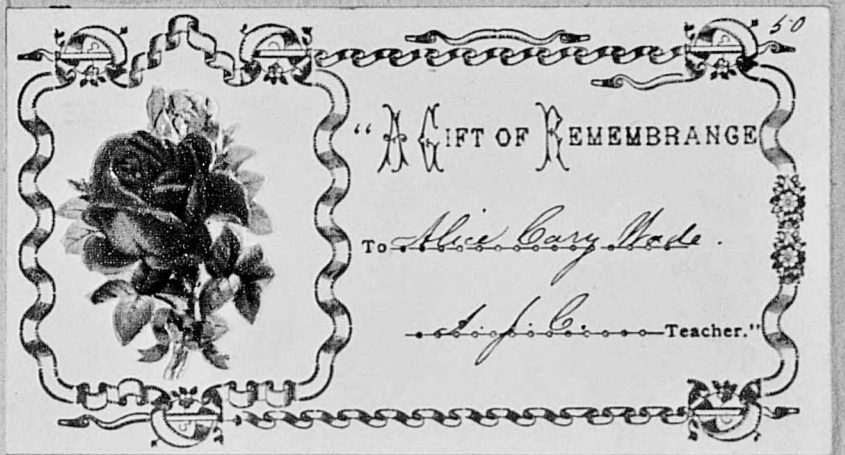 50
"A GIFT OF REMEMBRANGE
To Alice Cary Wade.
Teacher."